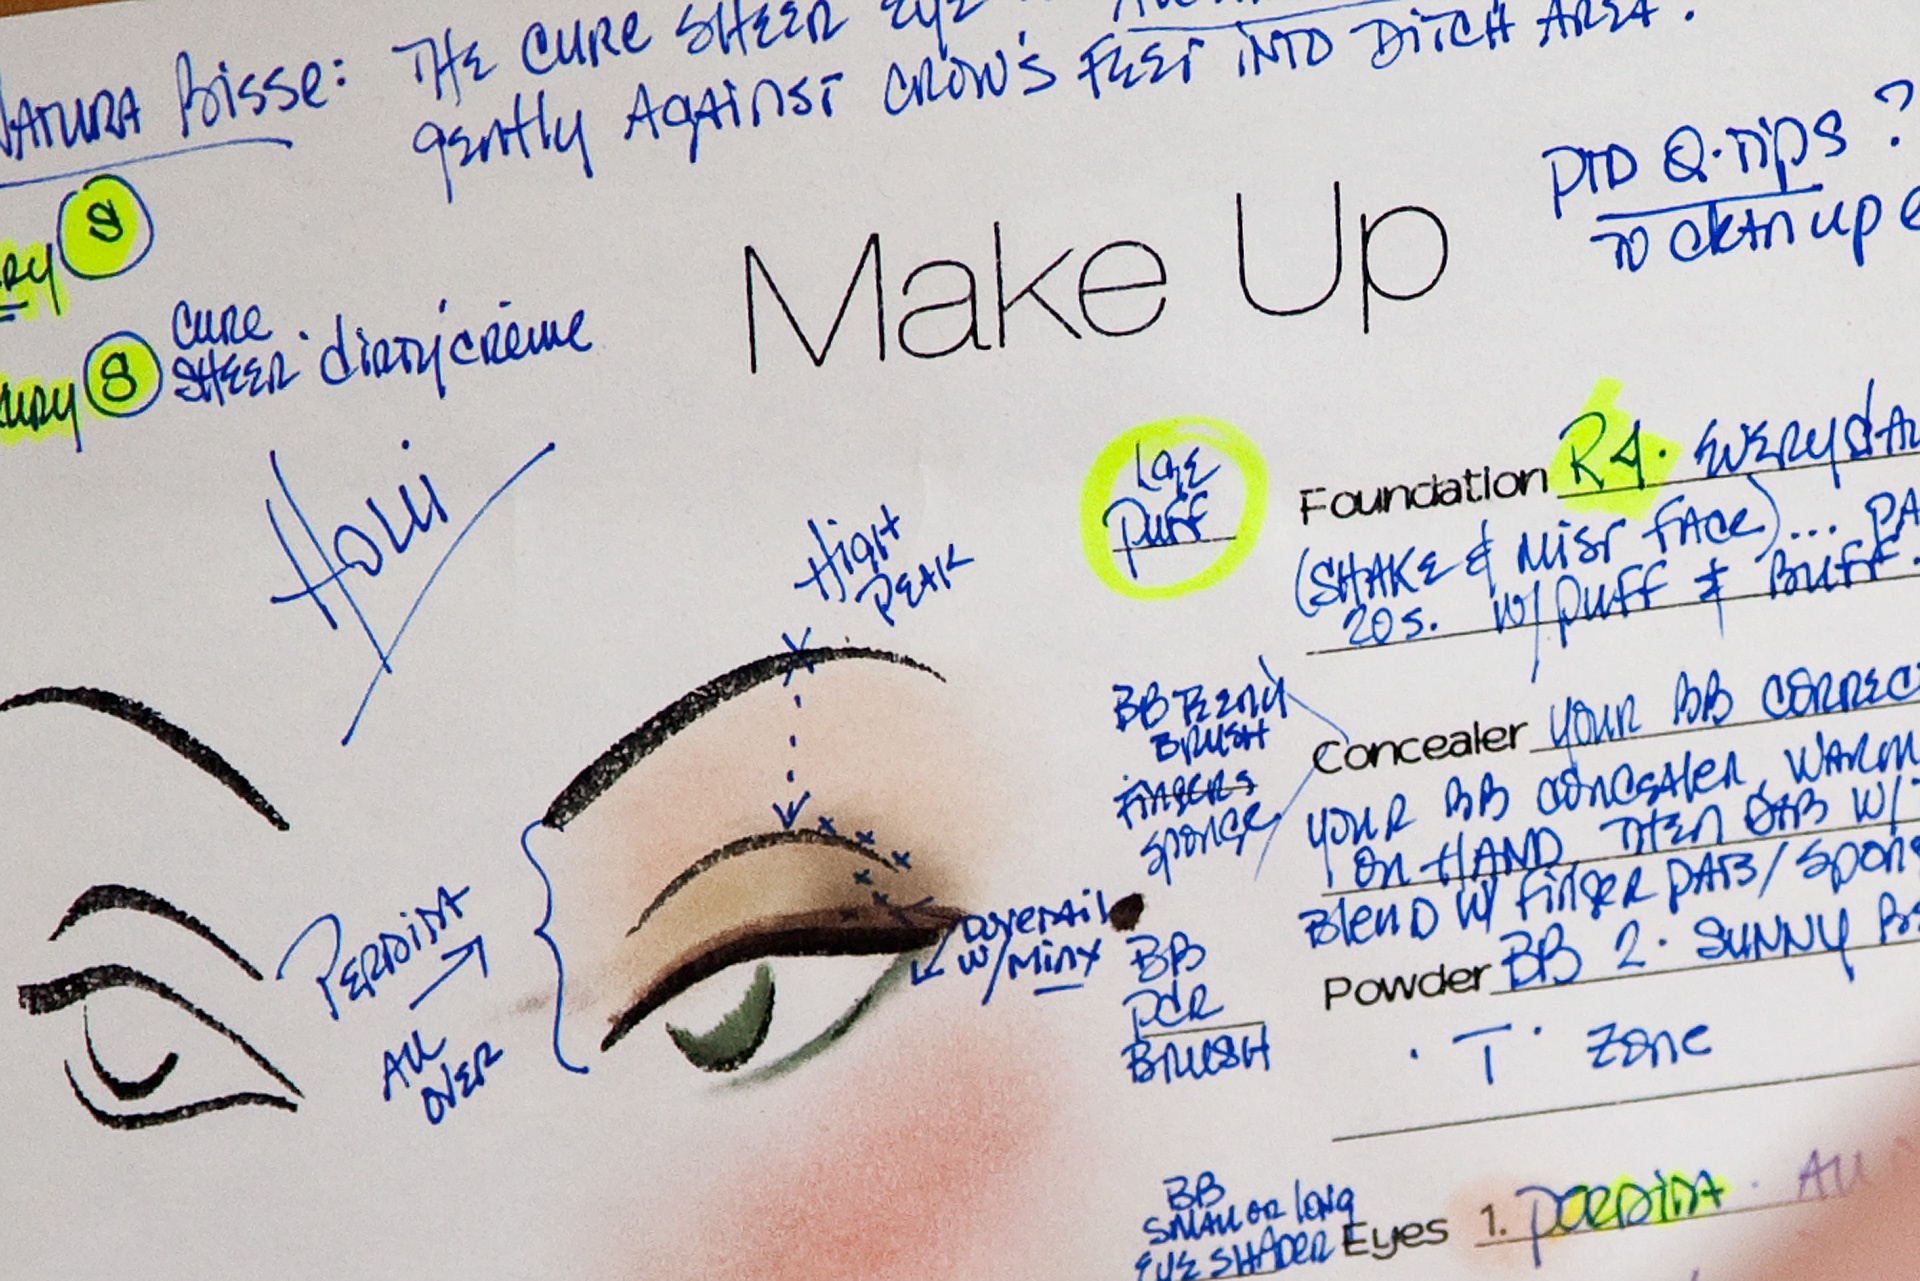 NATURA Bisse: THE CURE SHEER EYE
gently Against CROW'S FEET INTO DITCH AREA.
PTD Q-Tips?
TO CLEAN UP
S
8 CURE
SHEER · dirty crème
Make Up
Holli
HIGH
PEAK
LGE
PUFF
Foundation R4. EVERYDA
(SHAKE & MIST FACE)... PA
20s. W/ PUFF & BUFF.
BB
BRUSH
FINGERS
SPONGE
Concealer YOUR BB CORREC
YOUR BB CONCEALER, WARM
ON HAND, THEN DAB W/
Blend W/ FINGER PATS/SPON
Powder BB 2. SUNNY
· T · ZONE
PERDITA
ALL
OVER
DOVETAIL
W/MINX
BB
PDR
BRUSH
BB
SMALL OR LONG
EYE SHADER
Eyes 1. PERDITA · All